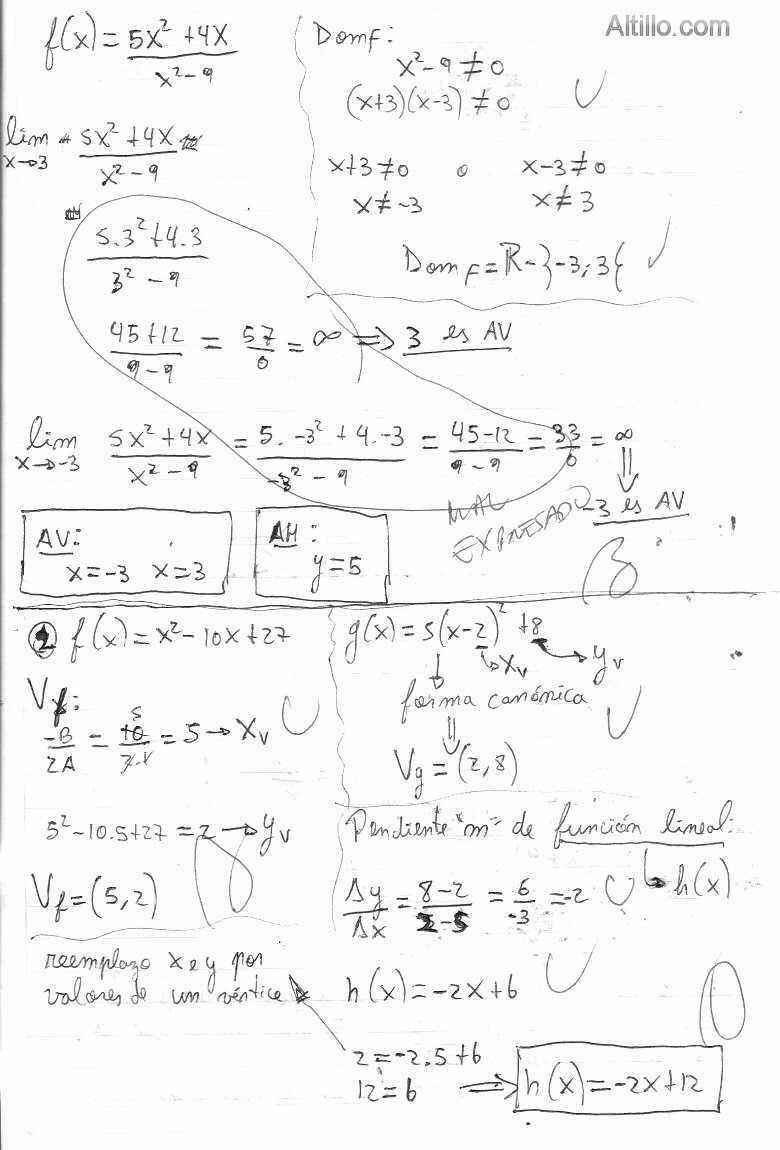 Altillo.com
f(x) = 5x² + 4x / x² - 9
lim x→3 5x² + 4x / x² - 9
5.3² + 4.3 / 3² - 9
45+12 / 9-9 = 57/0 = ∞ ⇒ 3 es AV
Dom f:
x² - 9 ≠ 0
(x+3)(x-3) ≠ 0
x+3 ≠ 0 o x-3 ≠ 0
x ≠ -3 x ≠ 3
Dom f = R - }-3; 3{
lim x→-3 5x² + 4x / x² - 9 = 5. -3² + 4. -3 / -3² - 9 = 45-12 / 9-9 = 33/0 = ∞
⇓
-3 es AV
MAL
EXPRESADO
AV:
x = -3 x = 3
AH:
y = 5
B
2 f(x) = x² - 10x + 27
Vf:
-B/2A = 10/2.1 = 5 → Xv
5² - 10.5 + 27 = 2 → yv
Vf = (5, 2)
g(x) = 5(x-2)² + 8
→ Xv → yv
forma canónica
⇓
Vg = (2, 8)
Pendiente "m" de función lineal:
↳ h(x)
Δy/Δx = 8-2 / 2-5 = 6/-3 = -2
reemplazo x e y por
valores de un vértice
h(x) = -2x + b
2 = -2.5 + b
12 = b ⇒ h(x) = -2x + 12